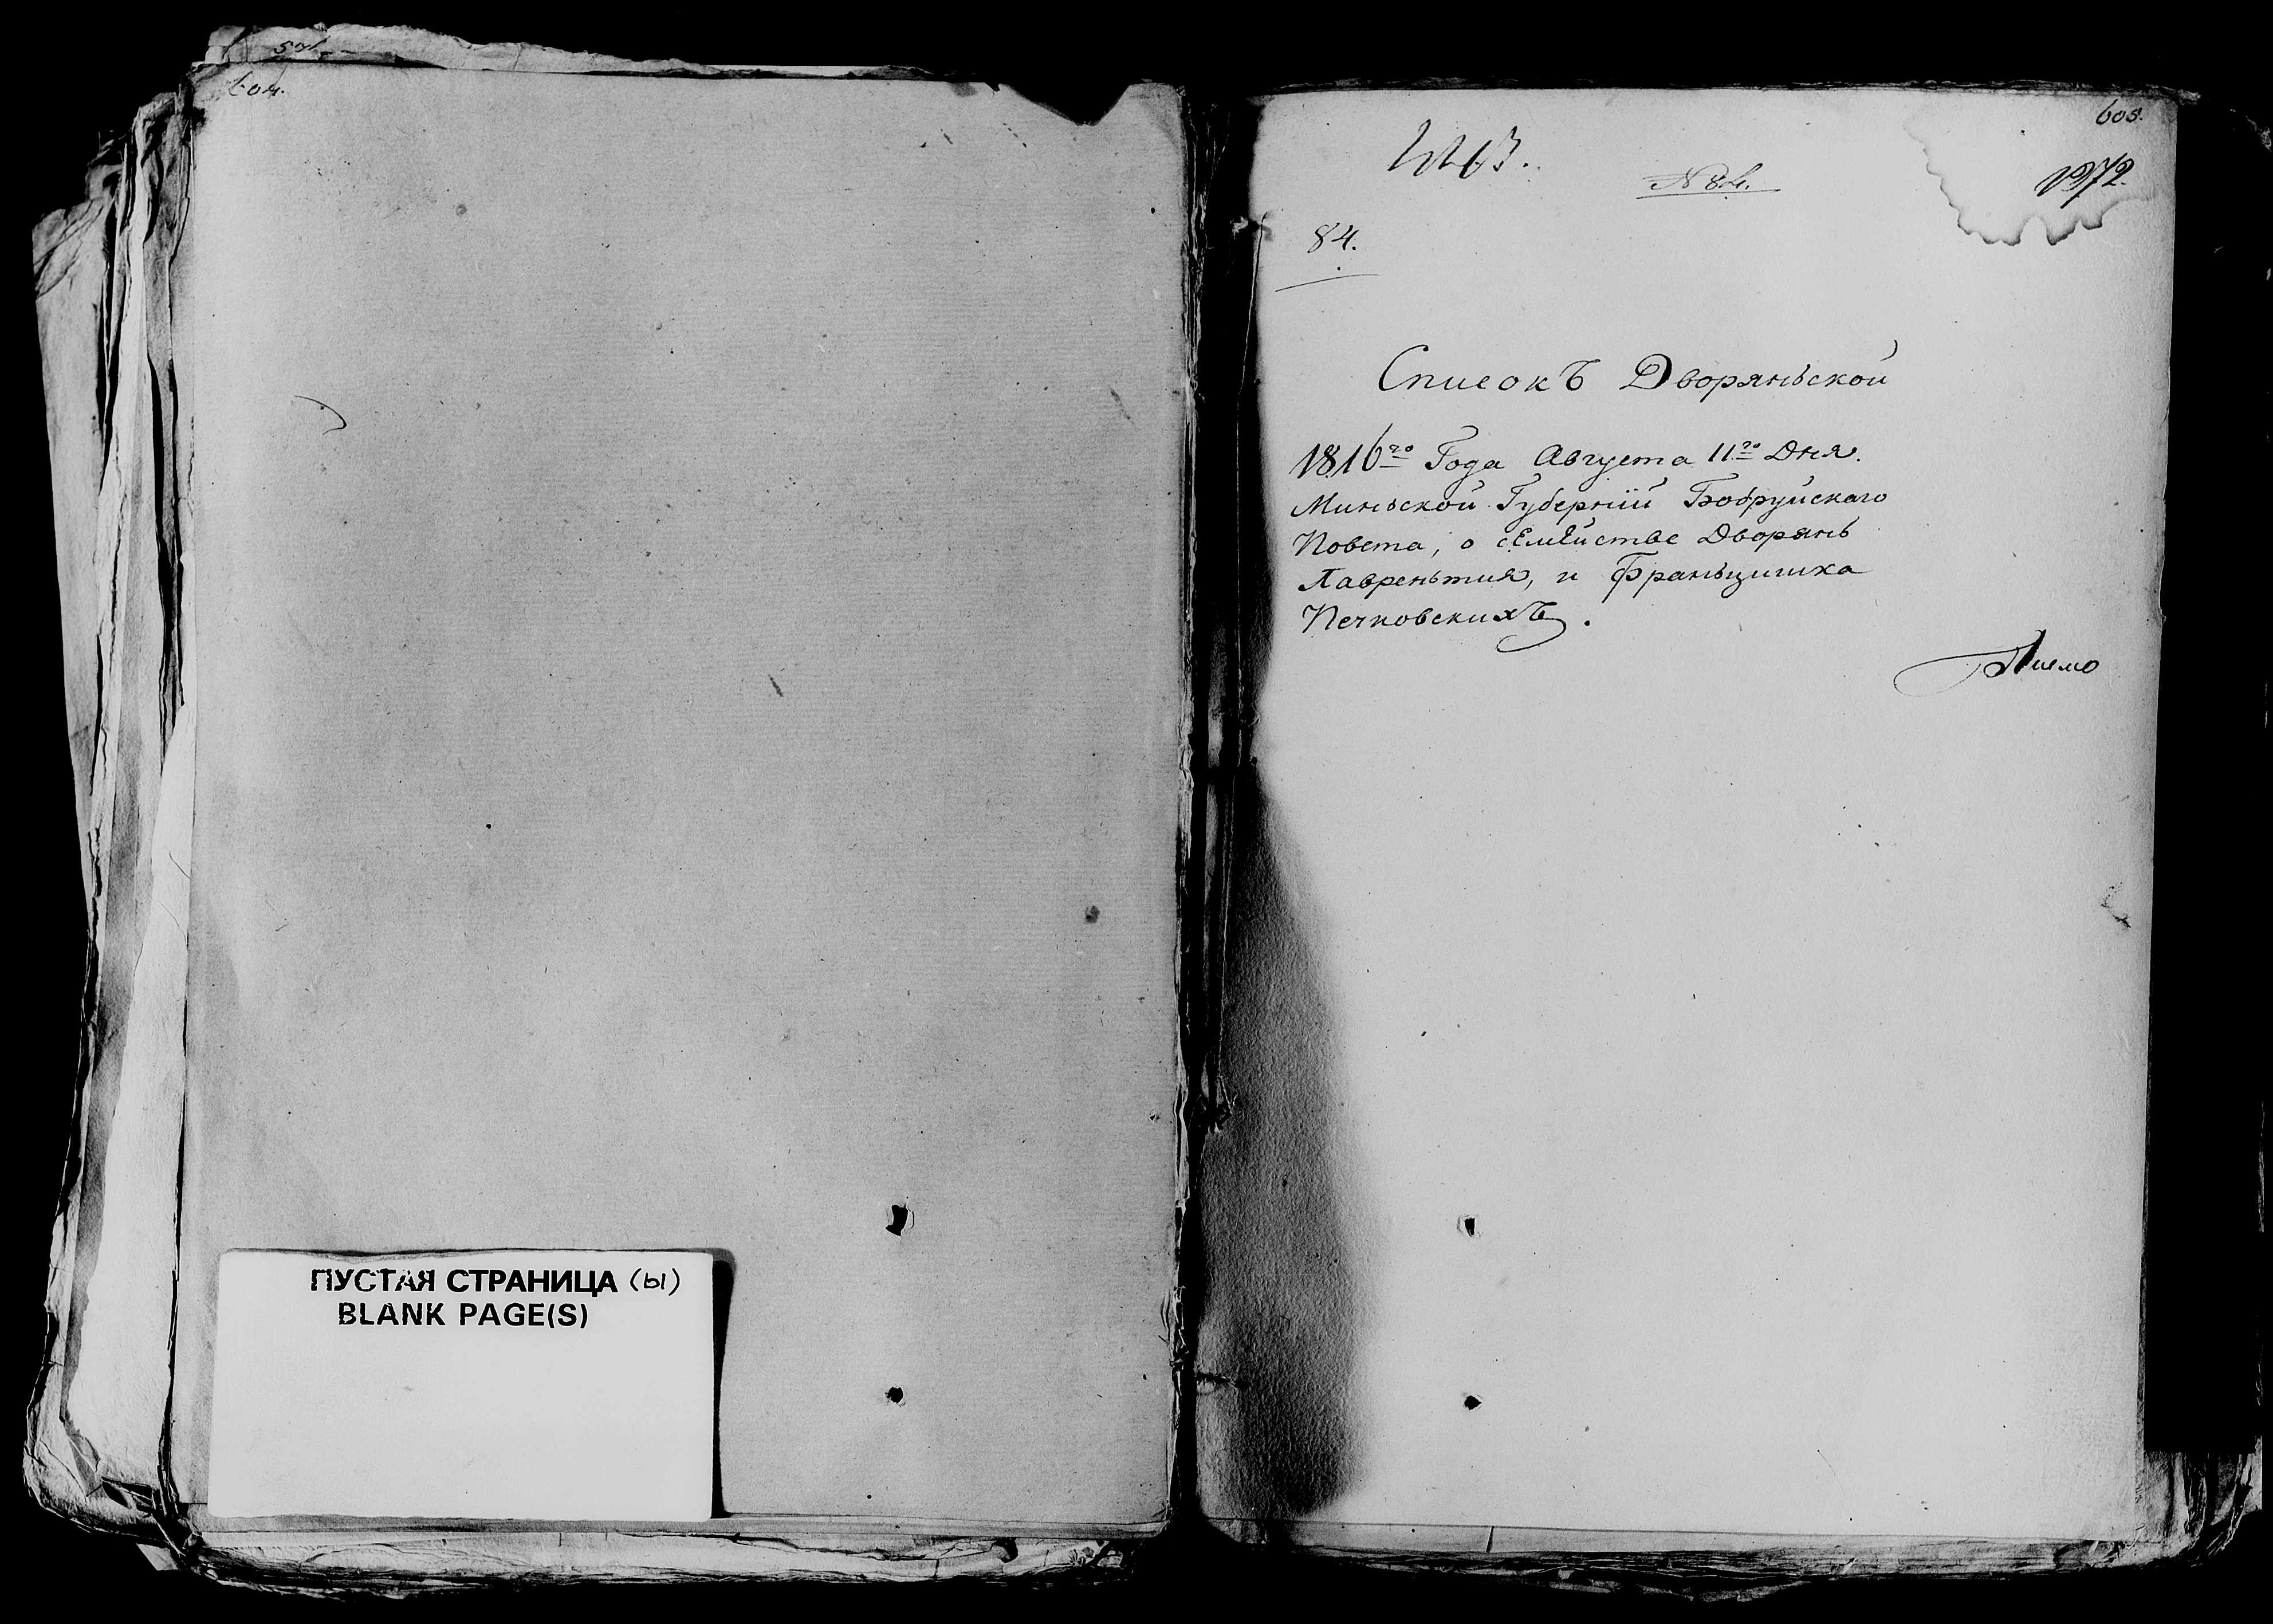 604.
ПУСТАЯ СТРАНИЦА (ы)
BLANK PAGE(S)
605.
N 84.
84.
Списокъ Дворяньской
1816го Года Августа 11го Дня.
Миньской Губерніи Бобруйскаго
Повета, о сЕмЕйстве Дворянь
Лавреньтия, и Франьцишка
Печковскихъ.